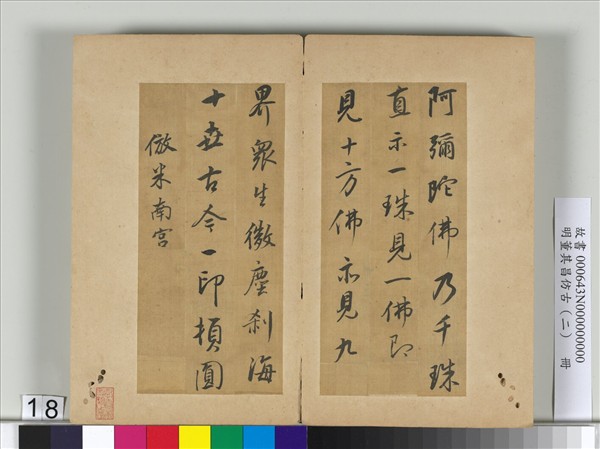 阿彌陀佛乃千珠
直示一珠見一佛即
見十方佛亦見九
界衆生微塵刹海
十世古今一印頓圓
倣米南宮
故書 000643N000000000
明董其昌仿古（二） 冊
18